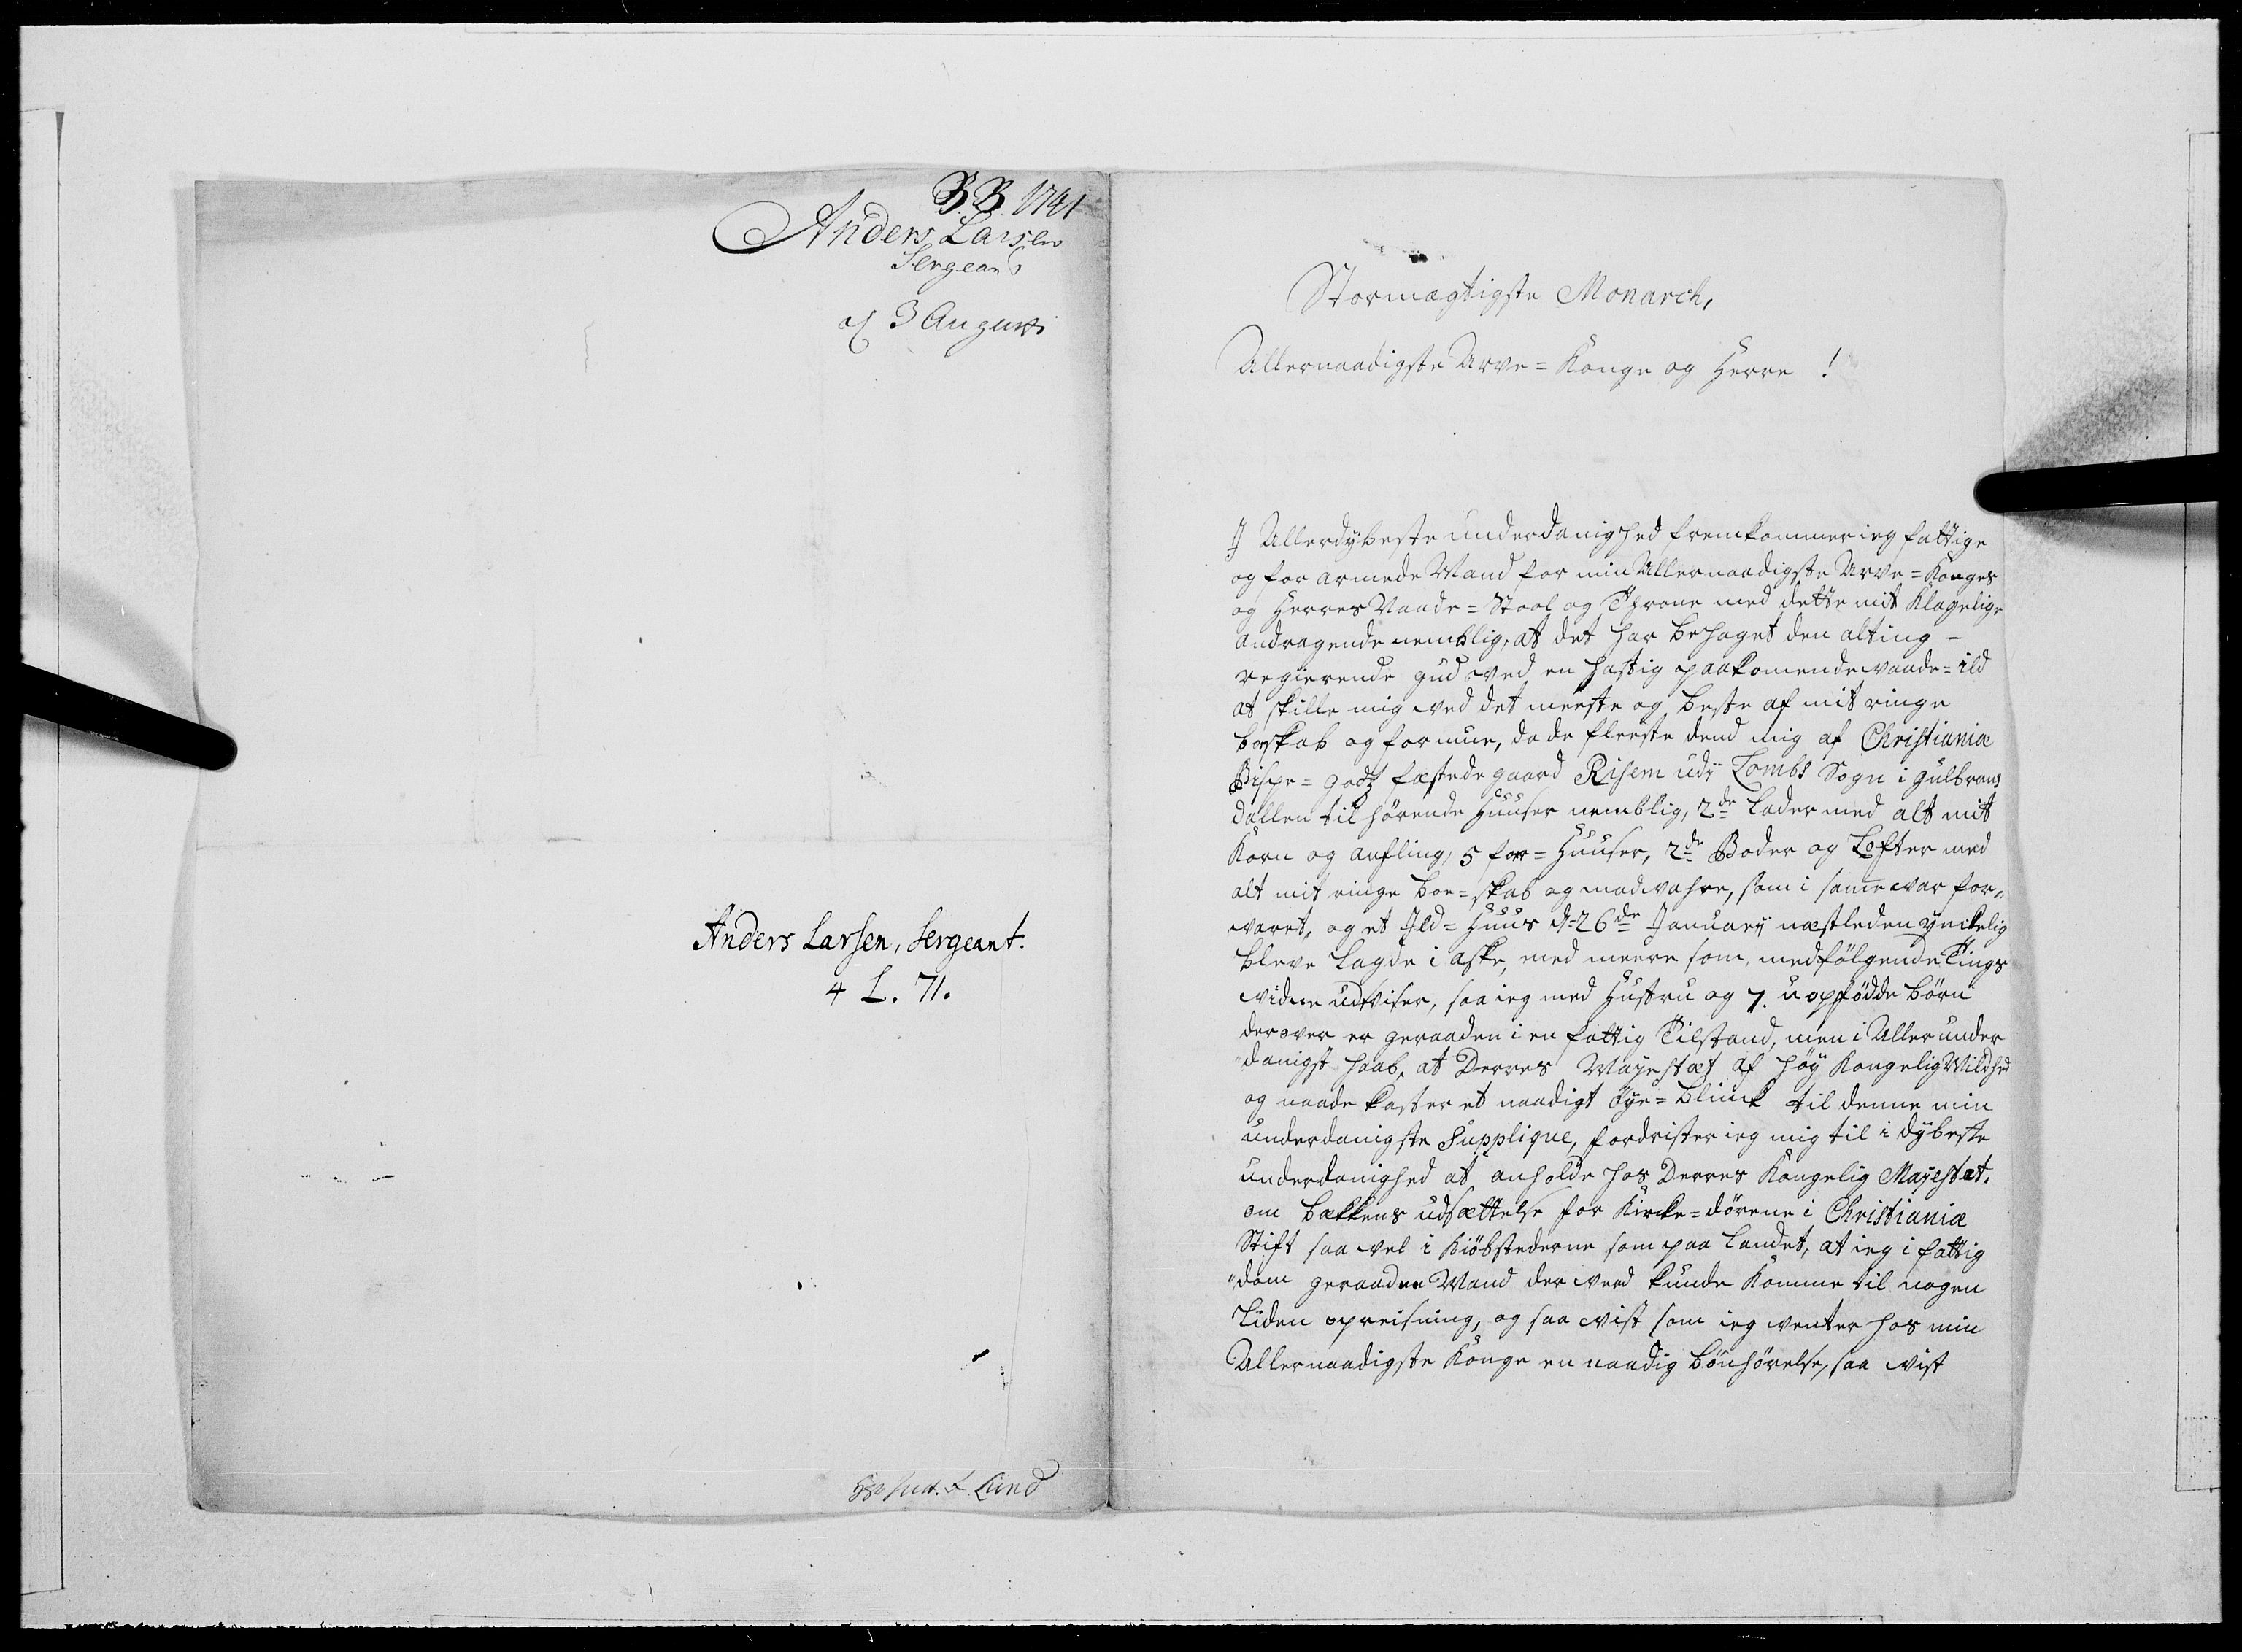 B.B. 1741
Anders Larsen
Sergeant
af 3 Augusti
Anders Larsen, Sergeant.
4 L. 71.
Lund
Stormægtigste Monarch,
Allernaadigste Arve=Konge og Herre !
J Allerdybeste underdanighed fremkommer ieg fattige
og forarmede Mand for min Allernaadigste Arve=Konges
og Herres Naade=Stool og Throne med dette mit Klagelige
andragende nemblig, at det har behaget den alting -
regierende gud ved en hastig paakomende vaade=ild
at skille mig ved det meeste og beste af mit ringe
boskab og formue, da de fleeste dend mig af Christiania
Bispe=godz fæstede gaard Risem udj Lombs Sogn i gulbrans
dallen tilhørende Huuser nemblig, 2de Lader med alt mit
Korn og aufling, 5 fæe=Huuser, 2de Boder og Lofter med
alt mit ringe boe=skab og madvahre, som i samme var for=
varet, og et Jld=Huus d. 26de Januarij næstleden ynkelig
bleve lagde i aske, med meere som medfølgende Tings
vidne udviser, saa ieg med Hustru og 7. uopfødde børn
derover er geraaden i en fattig Tilstand, men i Allerunder
"danigst haab, at Deres Mayestæt af høy Kongelig Mildhed
og naade kaster et naadigt Øye=blinck til denne min
underdanigste Supplique, fordrister ieg mig til i dybeste
underdanighed at anholde hos Deres Kongelig Mayestæt.
om bækkens udsættelse for Kircke=dørene i Christianiæ
Stift saa vel i Kiøbstederne som paa landet, at ieg i fattig
"dom geraadne Mand der ved kunde komme til nogen
liden opreisning, og saa vist som ieg venter hos min
Allernaadigste Konge en naadig bønhørelse, saa vist